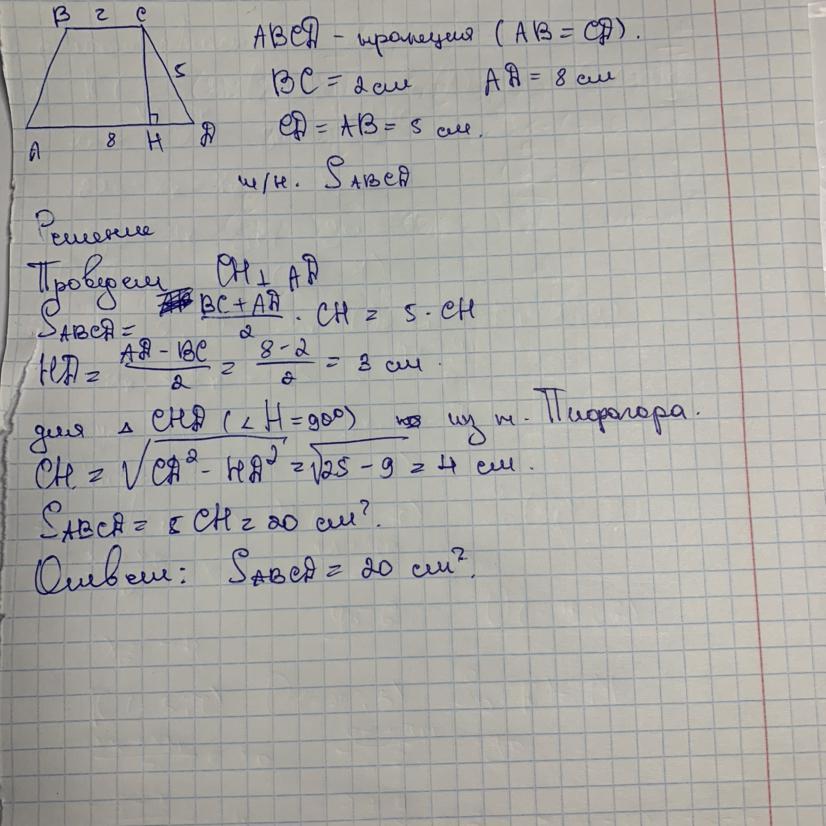 B 2 C
5
A 8 H D
ABCD - трапеция (AB = CD).
BC = 2 см AD = 8 см
CD = AB = 5 см.
н/н. S ABCD
Решение
Проведем CH ⊥ AD
S ABCD = (BC + AD)/2 · CH = 5 · CH
HD = (AD - BC)/2 = (8 - 2)/2 = 3 см.
для △ CHD (∠H = 90°) из т. Пифагора.
CH = √(CD² - HD²) = √(25 - 9) = 4 см.
S ABCD = 5 CH = 20 см².
Ответ: S ABCD = 20 см².